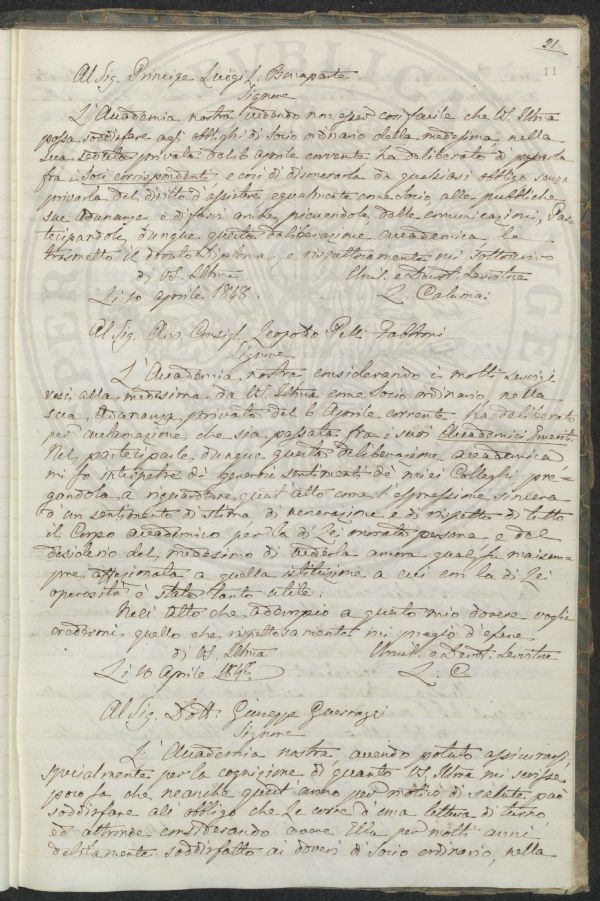 21
11
Al Sig. Principe Luigi L. Bonaparte
Signore
L'Accademia nostra vedendo non esser così facile che VS. Illma
possa soddisfare agli obblighi di Socio ordinario della medesima, nella
sua seduta privata del 6 Aprile corrente ha deliberato di passarla
fra i Soci corrispondenti e così di disonerarla da qualsiasi obbligo senza
privarla del diritto d'assistere egualmente come Socio alle pubbliche
sue Adunanze e di farvi anche, piacendole delle comunicazioni. Par-
tecipandole dunque questa deliberazione accademica le
trasmetto il diploma, e rispettosamente mi sottoscrivo
di VS. Illma
Li 10 Aprile 1848.
L. Calamai
Al Sig. Cav. Consigl. Leopoldo Pelli Fabbroni
Signore
L'Accademia nostra considerando i molti servigi
resi alla medesima da VS. Illma come Socio ordinario, nella
sua Adunanza privata del 6 Aprile corrente ha deliberato
per acclamazione, che sia passata fra i suoi Accademici Emeriti.
Nel partecipare dunque questa deliberazione accademica
mi fo interpetre de' generosi sentimenti de' miei Colleghi, pre-
gandola a riguardare quest'atto come l'espressione sincera
d'un sentimento di stima di venerazione e di rispetto di tutto
il Corpo accademico per la di Lei onorata persona e del
desiderio del medesimo di vederla ancora qual fu mai sem-
pre affezionata a quella istituzione a cui con la di Lei
operosità è stata tanto utile.
Nell'atto che adempio a questo mio dovere voglia
credermi quello che rispettosamente mi pregio d'essere
di VS. Illma
Li 10 Aprile 1848
L. C.
Al Sig. Dott. Giuseppe Guerrazzi
Signore
L'Accademia nostra, avendo potuto assicurarsi,
specialmente per la cognizione di quanto VS. Illma mi scrisse
poco fa che neanche quest'anno per motivo di salute può
soddisfare all'obbligo che Le corre d'una lettura di turno
ed altronde considerando avere Ella per molti anni
debitamente soddisfatto ai doveri di Socio ordinario, nella